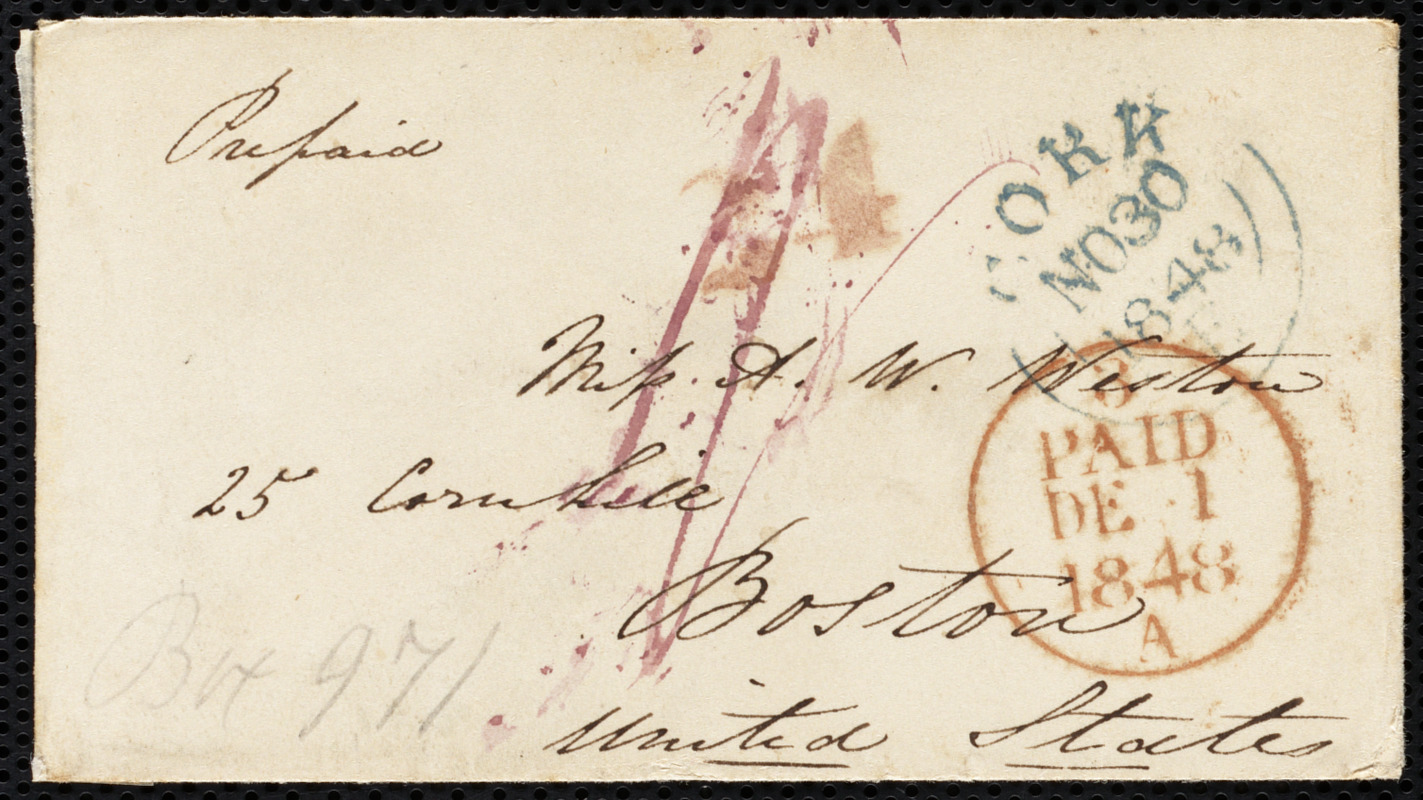 Prepaid
CORK
NO30
1848
Miss. A. W. Weston
25 Cornhill
Boston
United States
8
PAID
DE 1
1848
A
Box 971